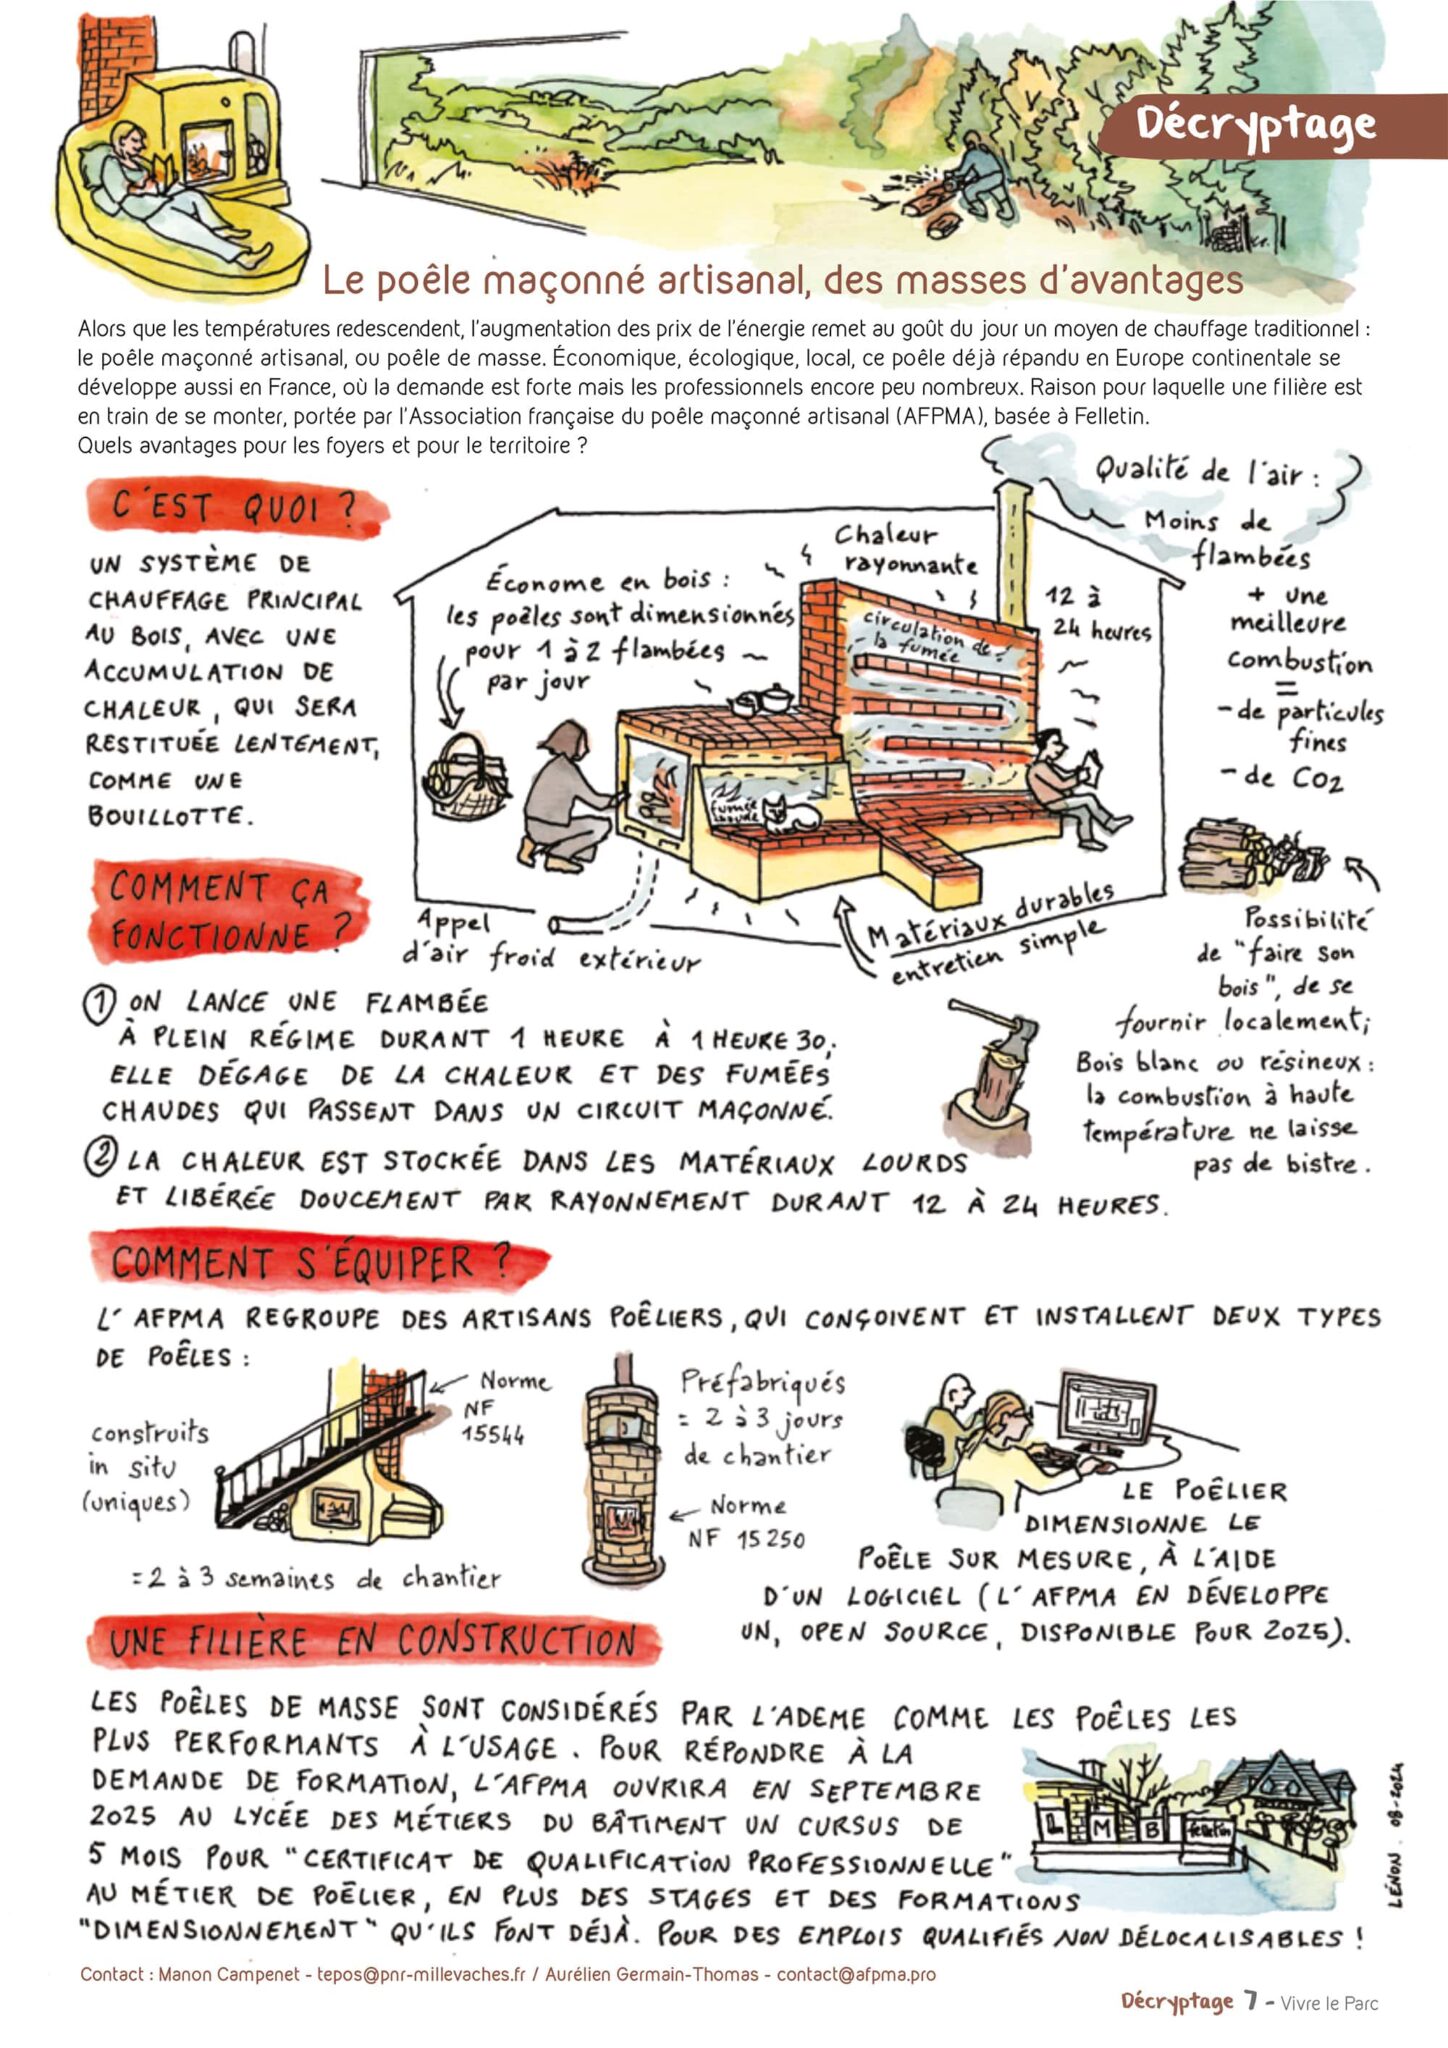 Décryptage
Le poêle maçonné artisanal, des masses d'avantages
Alors que les températures redescendent, l'augmentation des prix de l'énergie remet au goût du jour un moyen de chauffage traditionnel :
le poêle maçonné artisanal, ou poêle de masse. Économique, écologique, local, ce poêle déjà répandu en Europe continentale se
développe aussi en France, où la demande est forte mais les professionnels encore peu nombreux. Raison pour laquelle une filière est
en train de se monter, portée par l'Association française du poêle maçonné artisanal (AFPMA), basée à Felletin.
Quels avantages pour les foyers et pour le territoire ?
C'EST QUOI ?
UN SYSTÈME DE
CHAUFFAGE PRINCIPAL
AU BOIS, AVEC UNE
ACCUMULATION DE
CHALEUR, QUI SERA
RESTITUÉE LENTEMENT,
COMME UNE
BOUILLOTTE.
Économe en bois :
les poêles sont dimensionnés
pour 1 à 2 flambées
par jour
Chaleur
rayonnante
circulation de
la fumée
12 à
24 heures
fumée
chaude
Qualité de l'air :
Moins de
flambées
+ une
meilleure
combustion
=
- de particules
fines
- de CO2
Appel
d'air froid extérieur
Matériaux durables
entretien simple
Possibilité
de "faire son
bois", de se
fournir localement;
Bois blanc ou résineux :
la combustion à haute
température ne laisse
pas de bistre.
COMMENT ÇA
FONCTIONNE ?
1 ON LANCE UNE FLAMBÉE
À PLEIN RÉGIME DURANT 1 HEURE À 1 HEURE 30;
ELLE DÉGAGE DE LA CHALEUR ET DES FUMÉES
CHAUDES QUI PASSENT DANS UN CIRCUIT MAÇONNÉ.
2 LA CHALEUR EST STOCKÉE DANS LES MATÉRIAUX LOURDS
ET LIBÉRÉE DOUCEMENT PAR RAYONNEMENT DURANT 12 À 24 HEURES.
COMMENT S'ÉQUIPER ?
L'AFPMA REGROUPE DES ARTISANS POÊLIERS, QUI CONÇOIVENT ET INSTALLENT DEUX TYPES
DE POÊLES :
construits
in situ
(uniques)
Norme
NF
15544
= 2 à 3 semaines de chantier
Préfabriqués
= 2 à 3 jours
de chantier
Norme
NF 15250
LE POÊLIER
DIMENSIONNE LE
POÊLE SUR MESURE, À L'AIDE
D'UN LOGICIEL (L'AFPMA EN DÉVELOPPE
UN, OPEN SOURCE, DISPONIBLE POUR 2025).
UNE FILIÈRE EN CONSTRUCTION
LES POÊLES DE MASSE SONT CONSIDÉRÉS PAR L'ADEME COMME LES POÊLES LES
PLUS PERFORMANTS À L'USAGE. POUR RÉPONDRE À LA
DEMANDE DE FORMATION, L'AFPMA OUVRIRA EN SEPTEMBRE
2025 AU LYCÉE DES MÉTIERS DU BÂTIMENT UN CURSUS DE
5 MOIS POUR "CERTIFICAT DE QUALIFICATION PROFESSIONNELLE"
AU MÉTIER DE POÊLIER, EN PLUS DES STAGES ET DES FORMATIONS
"DIMENSIONNEMENT" QU'ILS FONT DÉJÀ. POUR DES EMPLOIS QUALIFIÉS NON DÉLOCALISABLES !
L M B felletin
LÉNON. 08-2024
Contact : Manon Campenet - tepos@pnr-millevaches.fr / Aurélien Germain-Thomas - contact@afpma.pro
Décryptage 7 - Vivre le Parc